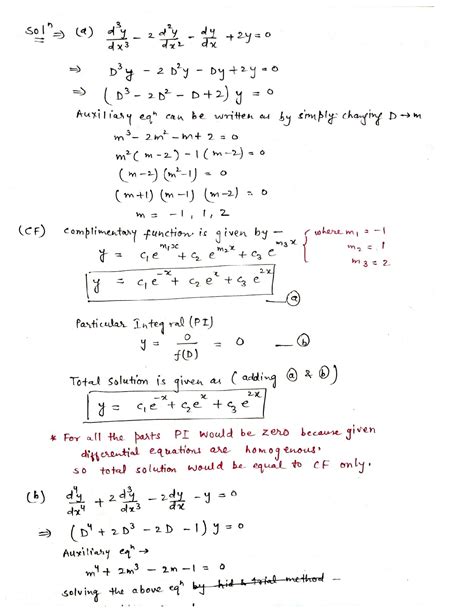 Solⁿ ⇒ (a) d³y/dx³ - 2 d²y/dx² - dy/dx + 2y = 0
⇒ D³y - 2D²y - Dy + 2y = 0
⇒ (D³ - 2D² - D + 2) y = 0
Auxiliary eqⁿ can be written as by simply changing D → m
m³ - 2m² - m + 2 = 0
m² (m-2) - 1 (m-2) = 0
(m-2) (m²-1) = 0
(m+1) (m-1) (m-2) = 0
m = -1, 1, 2
(CF) Complimentary function is given by -
y = c₁e^{m₁x} + c₂ e^{m₂x} + c₃ e^{m₃x} { where m₁ = -1
m₂ = 1
m₃ = 2
y = c₁e^{-x} + c₂ e^{x} + c₃ e^{2x}
— ⓐ
Particular Integral (PI)
y = 0/f(D) = 0 — ⓑ
Total solution is given as (adding ⓐ & ⓑ)
y = c₁e^{-x} + c₂e^{x} + c₃ e^{2x}
* For all the parts PI would be zero because given
differential equations are homogenous.
so total solution would be equal to CF only.
(b) d⁴y/dx⁴ + 2 d³y/dx³ - 2 dy/dx - y = 0
⇒ (D⁴ + 2D³ - 2D - 1) y = 0
Auxiliary eqⁿ →
m⁴ + 2m³ - 2m - 1 = 0
solving the above eqⁿ by hid & trial method -